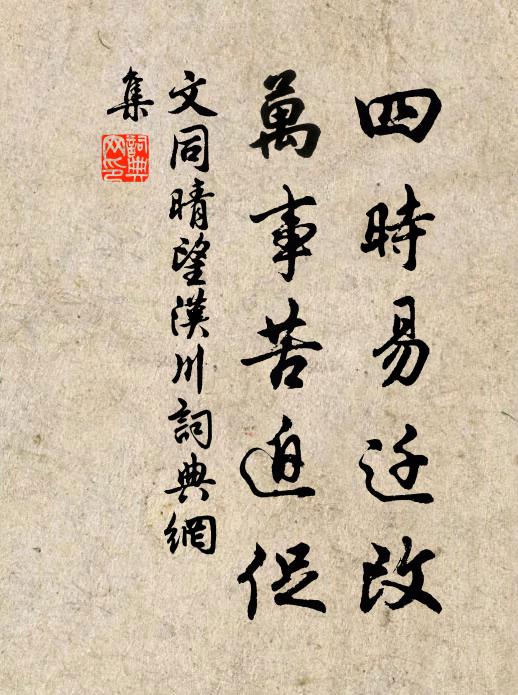 四時易迁改
萬事苦迫促
文同晴望漢川詞典網
集
詞典
网印